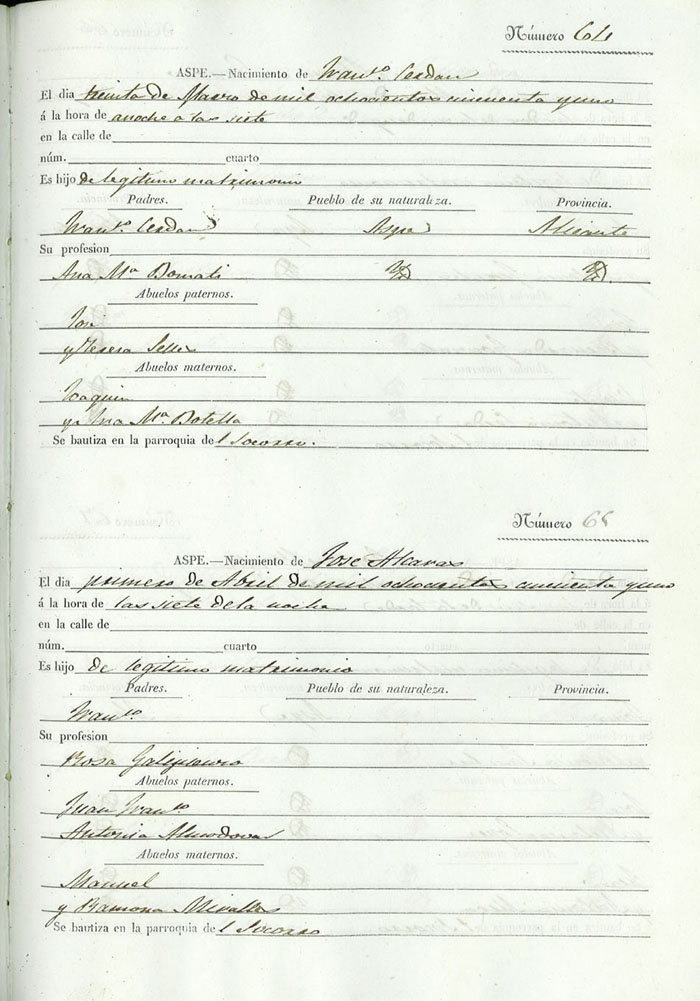 Número 64
ASPE.—Nacimiento de Franco. Cerdan
El dia treinta de Marzo de mil ochocientos cincuenta y uno
á la hora de anoche a las siete
en la calle de
núm. cuarto
Es hijo de legitimo matrimonio
Padres. Pueblo de su naturaleza. Provincia.
Franco. Cerdan Aspe Alicante
Su profesion
Ana Ma. Bomati Yd Yd.
Abuelos paternos.
José
y Teresa Selles
Abuelos maternos.
Joaquin
y Ana Ma. Botella
Se bautiza en la parroquia del Socorro.
Número 65
ASPE.—Nacimiento de Jose Alcaras
El dia primero de Abril de mil ochocientos cincuenta y uno
á la hora de las siete de la noche
en la calle de
núm. cuarto
Es hijo de legitimo matrimonio
Padres. Pueblo de su naturaleza. Provincia.
Franco
Su profesion
Rosa
Abuelos paternos.
Juan Franco
Antonia Almodovar
Abuelos maternos.
Manuel
y Ramona Miralles
Se bautiza en la parroquia del Socorro